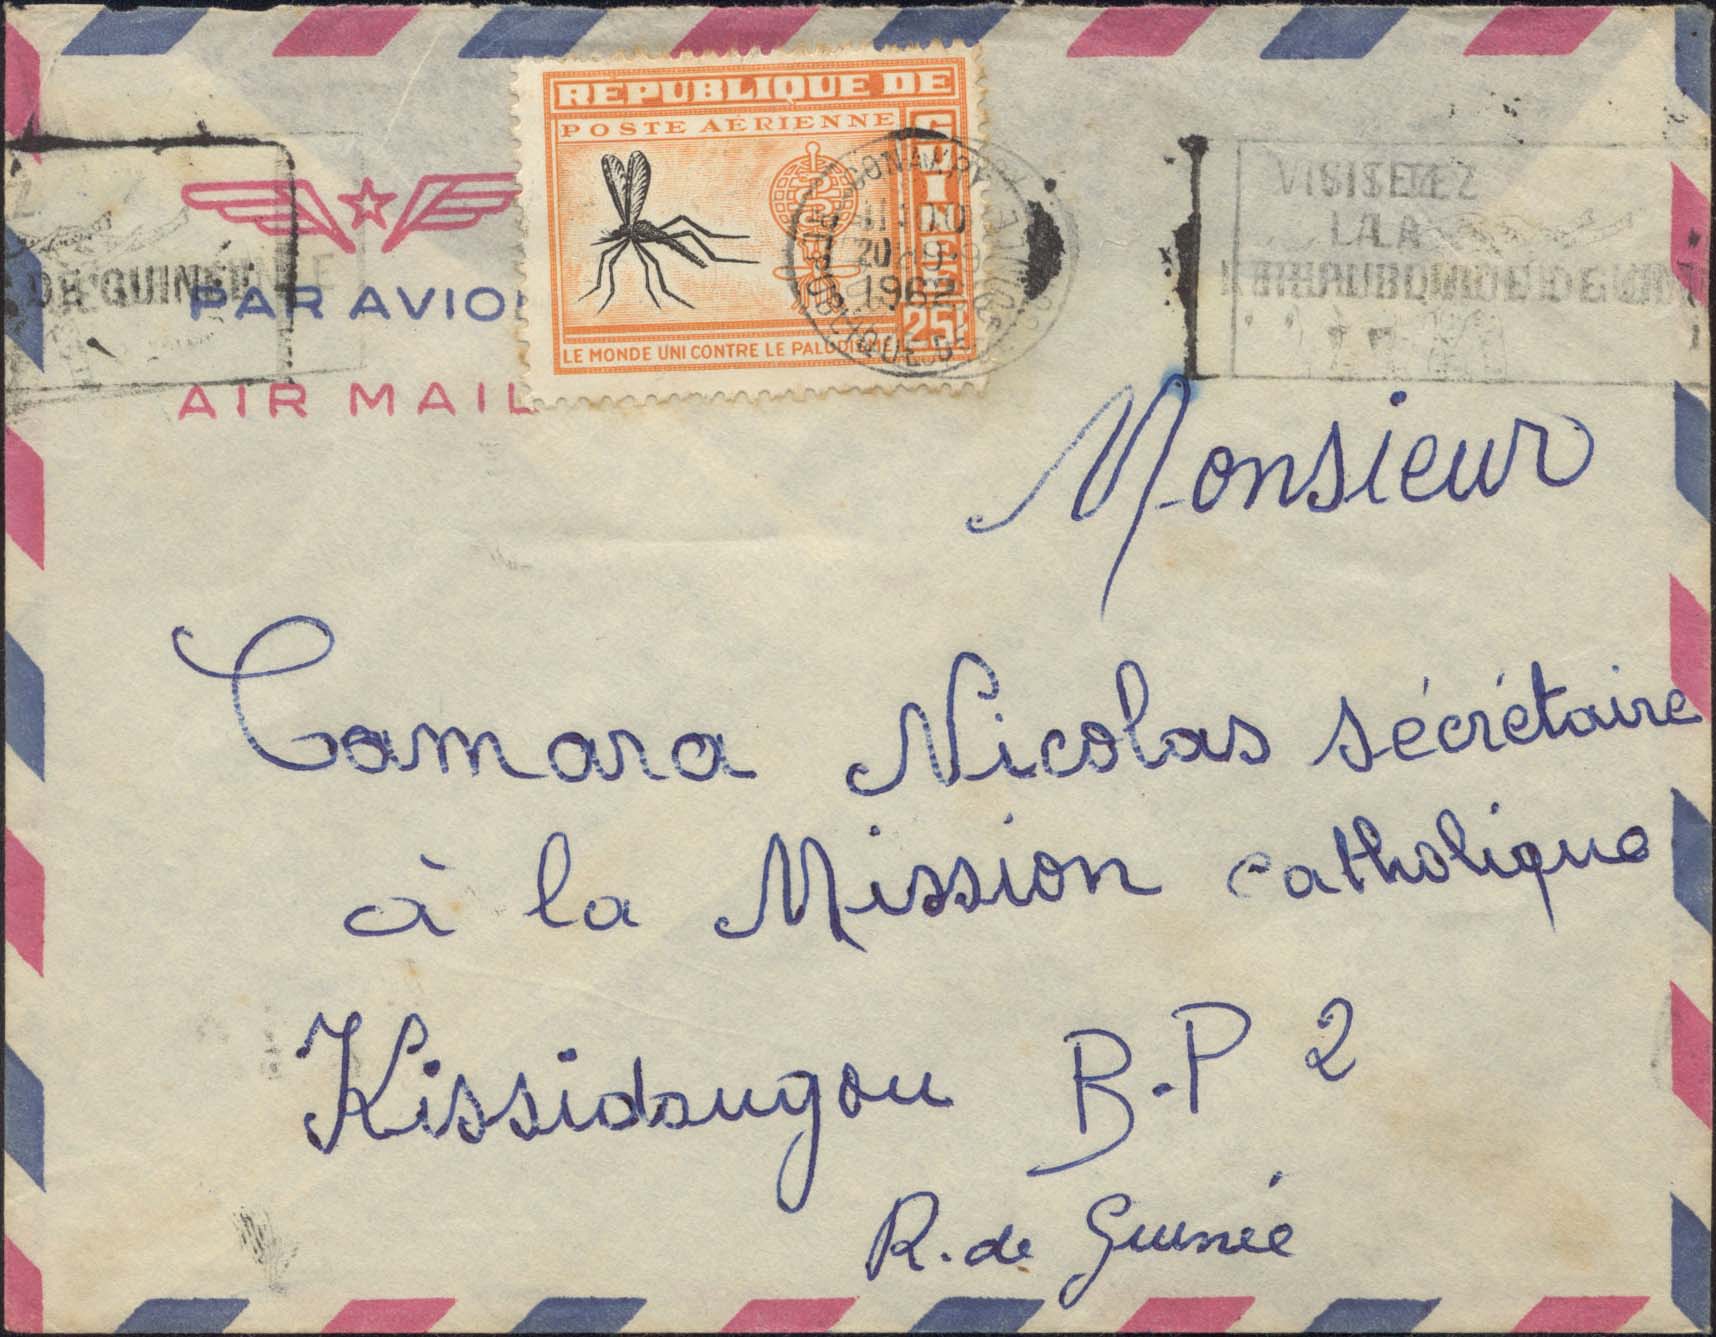 REPUBLIQUE DE
GUINEE
POSTE AÉRIENNE
25F
LE MONDE UNI CONTRE LE PALUDISME
CONAKRY
20
1962
VISITEZ
LA
DE GUINÉE
PAR AVION
AIR MAIL
Monsieur
Camara Nicolas sécrétaire
à la Mission catholique
Kissidougou B.P 2
R. de Guinée